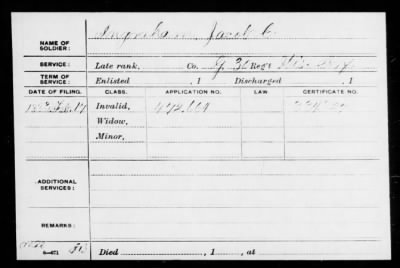 NAME OF SOLDIER: Ingraham, Jacob C.
SERVICE: Late rank, Co. G, 36 Reg't Wis. Inf.
TERM OF SERVICE: Enlisted , 1 Discharged , 1
DATE OF FILING. CLASS. APPLICATION NO. LAW CERTIFICATE NO.
Feb. 17 Invalid,
Widow,
Minor,
ADDITIONAL SERVICES:
REMARKS:
Died , 1 , at